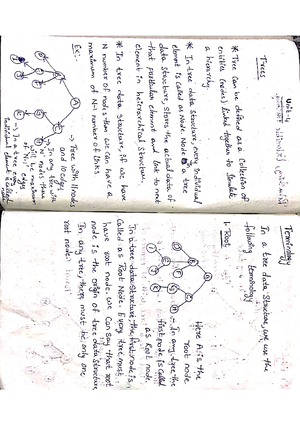 Unit-4
Trees
* Tree can be defined as a collection of
entities (nodes) linked together to simulate
a hierarchy.
* In tree data structure, every individual
element is called as Node. Node in a tree
data structure, stores the actual data of
that particular element and link to next
element in heirarchical structure.
* In tree data structure, if we have
N number of nodes then we can have a
maximum of N-1 number of links.
Ex:
A
→ Tree with 11 nodes
and 10 edges
→ In any tree with
'N' nodes there
will be maximum
of N-1 edges
→ In a tree every
individual element is called
Terminology
In a tree data structure, we use the
following terminology
1. Root
Here A is the
root node.
→ In any tree the
first node is called
as Root node
In a tree data structure, the first node is
called as Root Node. Every tree must
have root node. We can say that root
node is the origin of tree data structure
In any tree, there must be only one
root node.